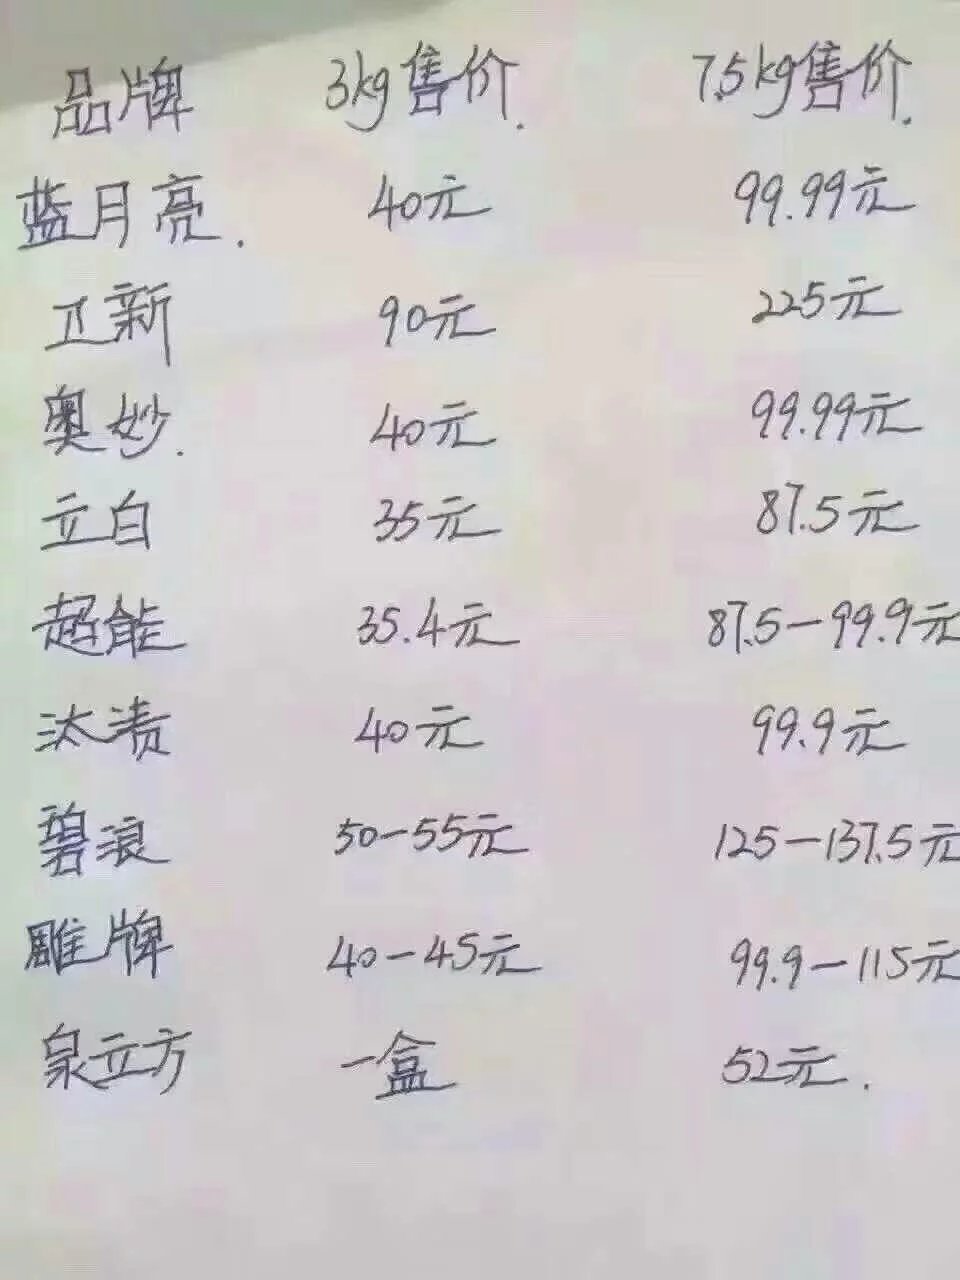 品牌 3kg售价. 7.5kg售价.
蓝月亮. 40元 99.99元
卫新 90元 225元
奥妙. 40元 99.99元
立白 35元 87.5元
超能 35.4元 87.5-99.9元
汰渍 40元 99.9元
碧浪 50-55元 125-137.5元
雕牌 40-45元 99.9-115元
泉立方 一盒 52元.